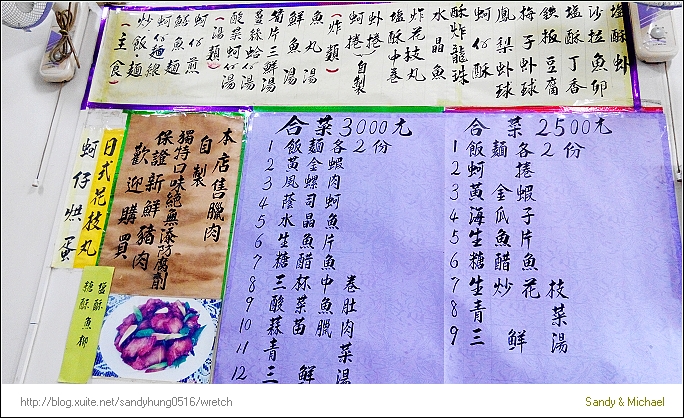 塩酥蝦
沙拉魚卵
塩酥丁香
鉄板豆腐
梅子蝦球
鳳梨蝦球
蚵仔酥
酥炸龍珠
水晶魚
炸花枝丸
塩酥中卷
蝦捲
蚵捲(自製)
(炸類)
魚丸湯
鮮魚湯
筍片三鮮湯
薑絲蛤仔湯
酸菜蚵仔湯
(湯類)
蚵仔煎
鮮魚麵
蚵仔麵線
炒飯麵
(主食)
合菜2500元
1 飯麵各2份
2 蚵捲
3 黃金蝦
4 海瓜子
5 生魚片
6 糖醋魚
7 生炒花枝
8 青菜
9 三鮮湯
合菜3000元
1 飯麵各2份
2 黃金蝦
3 鳳螺肉
4 蔭司蚵
5 水晶魚
6 生魚片
7 糖醋魚
8 三杯中卷
9 酸菜魚肚
10 蒜苗臘肉
11 青菜
12 三鮮湯
本店售臘肉
自製
獨特口味絕無添防腐劑
保證新鮮豬肉
歡迎購買
日式花枝丸
蚵仔烘蛋
塩酥
糖酥魚柳
http://blog.xuite.net/sandyhung0516/wretch
Sandy & Michael